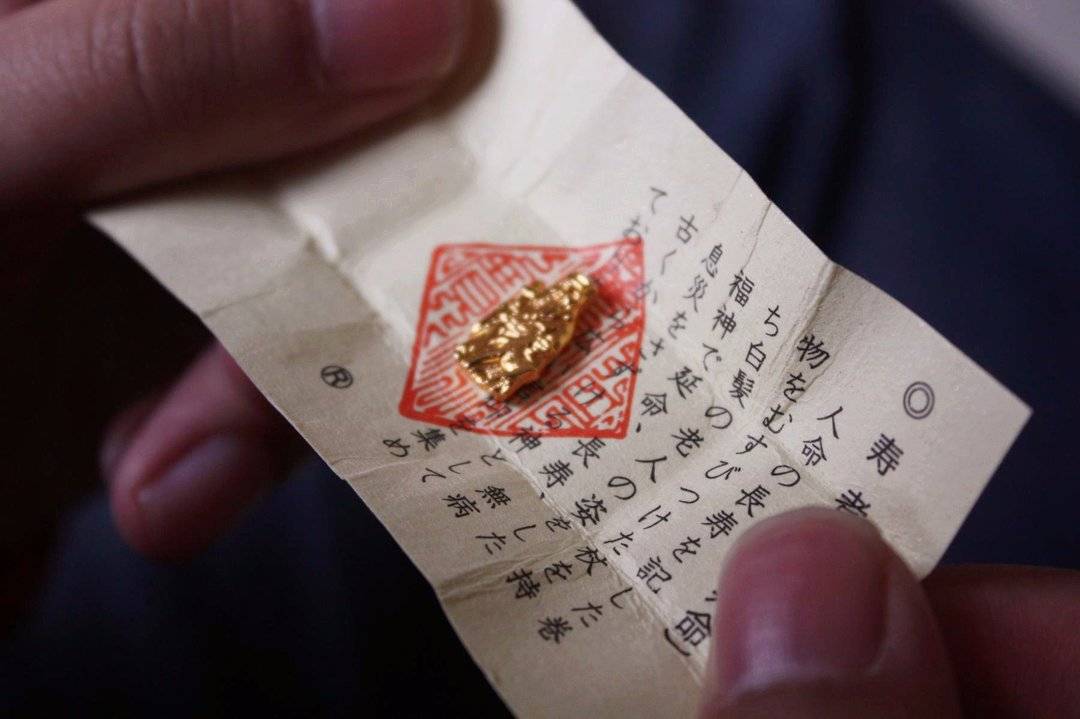 ◎ 寿老 命）
人命の長寿を記した巻
物をむすびつけた杖を持
ち白髪の老人の姿をした
福神で延命、長寿、無病
息災をさずける神として
古くか 集め
てお
®